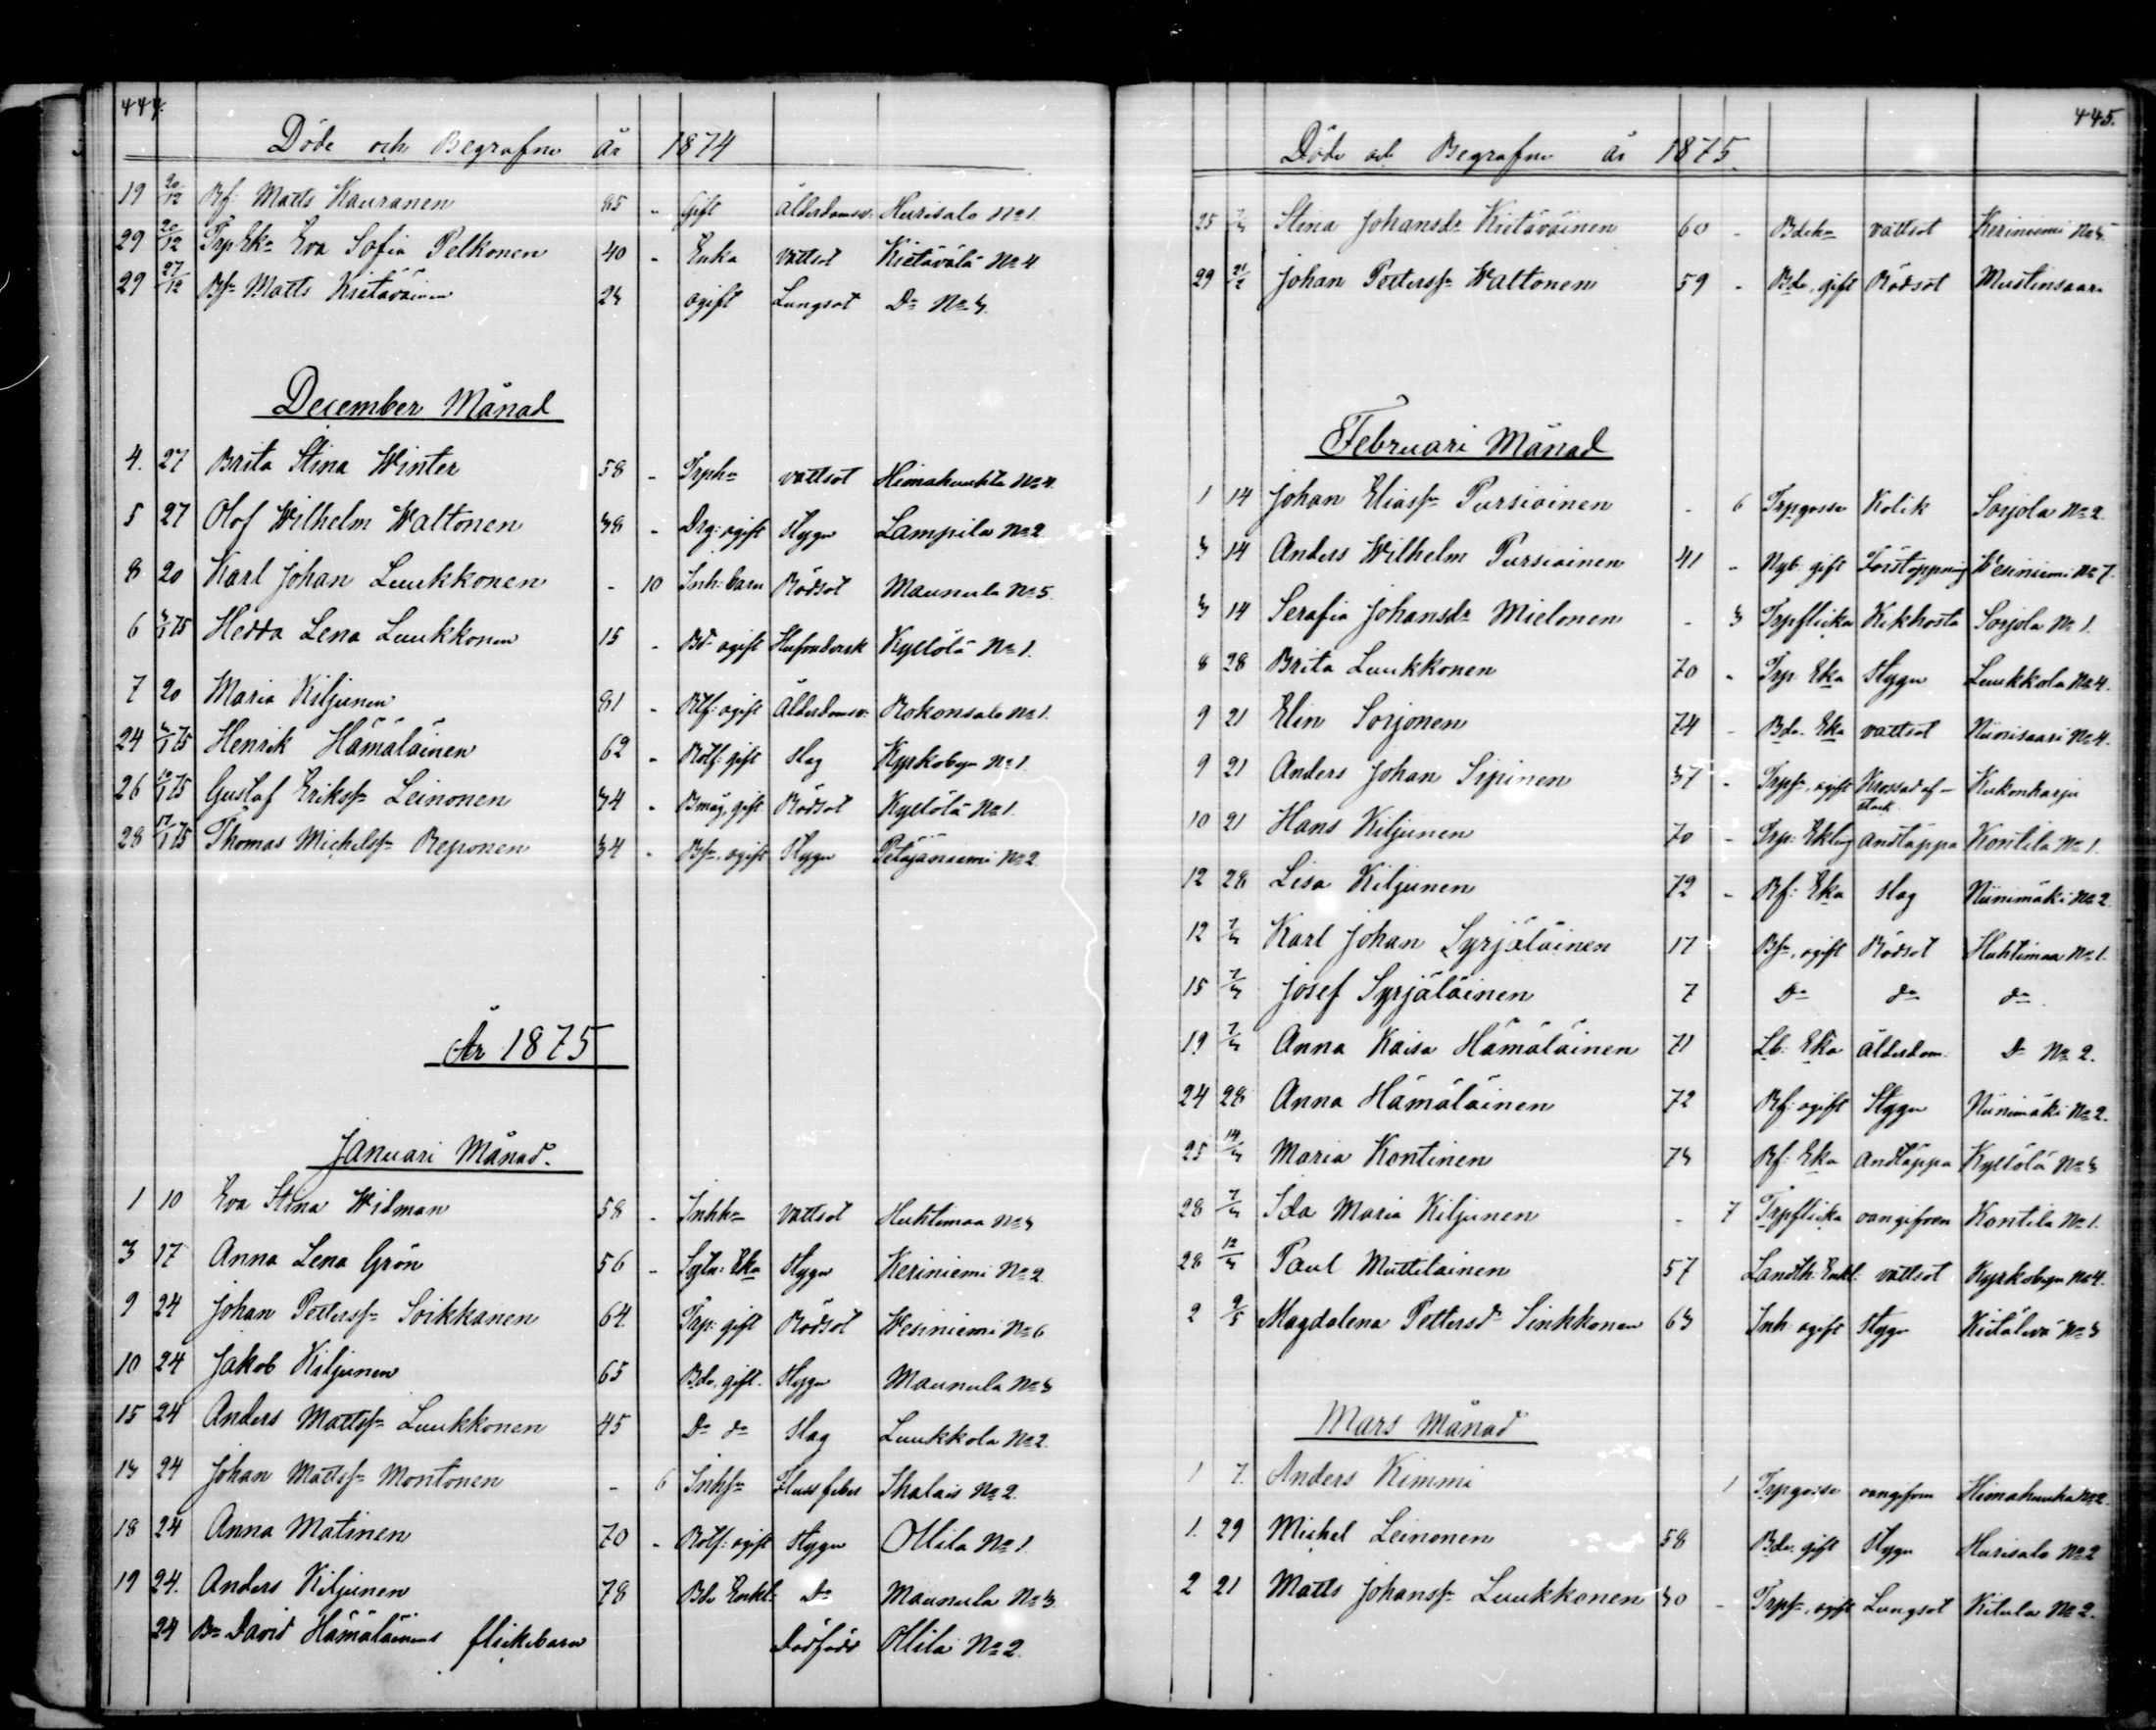 444.
Döde och Begrafne år 1874
19 20/12 Bf: Matts Kauranen 85 - Gift Ålderdomsv: Hurisalo No 1.
29 20/12 Trp Eka Eva Sofia Pelkonen 40 - Enka Vattsot Kietävälä No 4
29 27/12 Bsn Matts Kietäväinen 23 ogift Lungsot Do No 3.
December Månad
4. 27 Brita Stina Winter 58 - Trph vattsot Himahuuhta No 4.
5 27 Olof Wilhelm Waltonen 38 - Drg: ogift Stygn Lampila No 2
8 20 Karl Johan Luukkonen - 10 Inh: barn Rödsot Maunula No 5.
6 3/1 75 Hedda Lena Luukkonen 15 - Bd ogift Kyllölä No 1.
7 20 Maria Kiljunen 81 - Rtf: ogift Ålderdomsv: Rokonsalo No 1.
24 3/1 75 Henrik Hämäläinen 62 - Rotf: gift slag Kyrkobyn No 1.
26 10/1 75 Gustaf Eriksson Leinonen 34 - Bmåg, gift Rödsot Kyllölä No 1.
28 17/1 75 Thomas Michelsson Reponen 34 - Bsn, ogift Stygn Petäjäniemi No 2.
År 1875
Januari Månad.
1 10 Eva Stina Widman 58 - Inhh vattsot Huhtimaa No 3
3 17 Anna Lena Grön 56 - Eka Stygn Keriniemi No 2.
9 24 Johan Pettersson Soikkanen 64. Trp: gift Rödsot Wesiniemi No 6
10 24 Jakob Kiljunen 65 Bde, gift. Stygn Maunula No 3
15 24 Anders Mattsson Luukkonen 45 Do do slag Luukkola No 2.
13 24 Johan Mattsson Montonen - 6 Inhsn Flussfeber Ihalais No 2.
18 24 Anna Matinen 70 - Rotf: ogift stygn Ollila No 1.
19 24. Anders Kiljunen 78 Bde Enkl: Do Maunula No 3.
24 Bn David Hämäläinens flickebarn Dödfödd Ollila No 2.
445.
Döde och Begrafne år 1875.
25 7/3 Stina Johansdr Kietäväinen 60 - Bdeh vattsot Keriniemi No 5.
29 21/2 Johan Pettersson Waltonen 59 - Bde, gift Rödsot Mustinsaari
Februari Månad
1 14 Johan Eliasson Pursiainen - 6 Trpgosse Kolik Sorjola No 2.
3 14 Anders Wilhelm Pursiainen 41 - Nyb: gift Förstoppning Wesiniemi No 7.
3 14 Serafia Johansdr Mielonen - 3 Trpflicka Kikhosta Sorjola No 1.
8 28 Brita Luukkonen 70 - Trp: Eka Stygn Luukkola No 4.
9 21 Elin Sorjonen 74 - Bde. Eka vattsot Niinisaari No 4.
9 21 Anders Johan Sipinen 37 - Trpsn, ogift Krossad af stock Kukonharju
10 21 Hans Kiljunen 70 - Trp: Enkling Andtäppa Kontila No 1.
12 28 Lisa Kiljunen 72 - Bf: Eka slag Niinimäki No 2.
12 7/3 Karl Johan Syrjäläinen 17 Bsn, ogift Rödsot Huhtimaa No 1.
15 7/3 Josef Syrjäläinen 7 Do do do
19 7/3 Anna Kaisa Hämäläinen 71 Lb: Eka Ålderdom: Do No 2.
24 28 Anna Hämäläinen 72 Bf: ogift Stygn Niinimäki No 2.
25 14/3 Maria Kontinen 73 Bf: Eka Andtäppa Kyllölä No 3
28 7/3 Ida Maria Kiljunen - 7 Trpflicka oangifven Kontila No 1.
28 12/3 Paul Muttilainen 57 Landth: Enkl: vattsot Kyrkobyn No 4.
2 9/5 Magdalena Pettersdr Sinkkonen 63 Inh: ogift stygn No 3
Mars Månad
1 7. Anders Kimmi 1 Trpgosse oangifven Himahuuhta No 2.
1. 29 Michel Leinonen 58 Bde, gift Stygn Hurisalo No 2
2 21 Matts Johansson Luukkonen 30 - Trpsn, ogift Lungsot Kitula No 2.